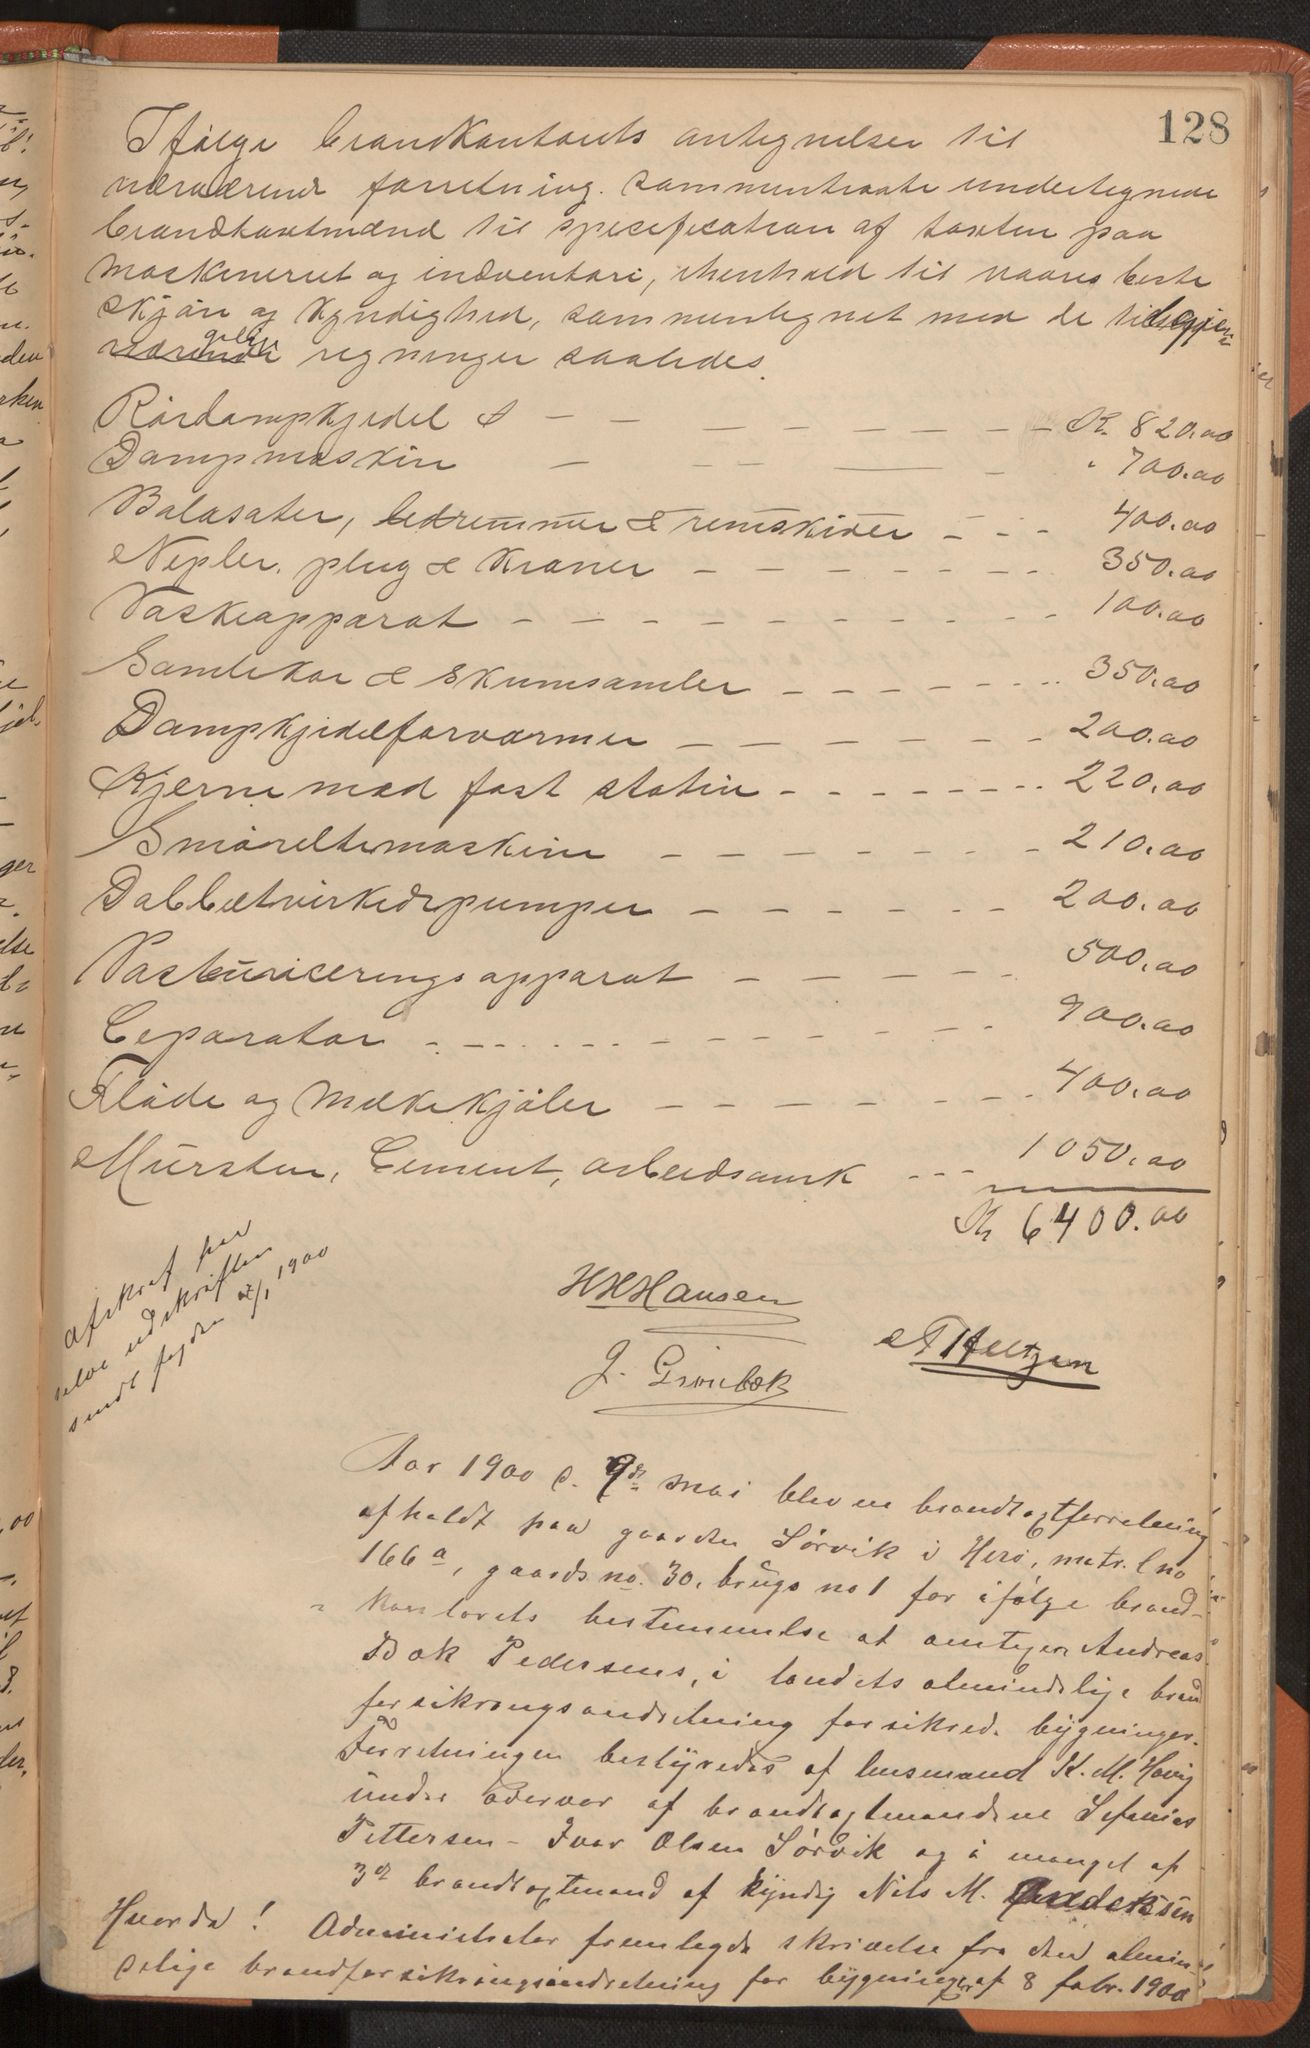 128
Ifølge brandkontorets antegnelser til
nærværende forretning. sammentraate undertegnede
brandtaxtmænd til specification af taxten paa
maskineriet og indventari, ihenhold til vaares beste
skjøn og kyndighed, sammenlignet med de
regninger saaledes.
Rørdampkjedel — — — — — — — Kr. 820.00
Dampmaskin — — — — — " 700.00
Balasater, ledremmer & remskiver — — — 400.00
Nepler. plug & kraner — — — — — — — 350.00
Vaskeapparat — — — — — — — — — — 100.00
Samlekar & Skumsamler — — — — — — — 350.00
Dampkjedelforvarmer — — — — — — — 200.00
Kjerne med fast stativ — — — — — — — 220.00
Smøreltemaskine — — — — — — — 210.00
Dobbeltvirkedepumper — — — — — — 200.00
Pasturiceringsapparat — — — — — 500.00
Ceparator — — — — — — — — — 900.00
Fløde og melkekjøler — — — — — — — 400.00
Mursten, Cement, arbeidsamk — — — 1050.00
Kr 6400.00
afskrat paa
selve udskriften
sendt fogden /1 1900
HHHansen
J. Grønbæk
Aar 1900 d. 9de mai blev en brandtagtforretning
afholdt paa gaarden Sørvik i Herø, matr. l no
166a, gaards no. 30, brugs no 1 for ifølge brand-
kontorets bestemmelse at omtagere Andreas
Bak Pedersens, i landets almindelige brand
forsikrongsandretning forsikrede bygninger.
Forretningen bestyredes af lensmand K. M. Havig
under overvær af brandtagtmændene Sefanias
Pettersen - Ivar Olsen Sørvik og i mangel af
3de brandtagtmand af kyndig Nils M.
Hvorda! Administrator fremlagde skrivelse fra den almin-
delige brandforsikringsindretning for bygninger af 8 febr. 1900